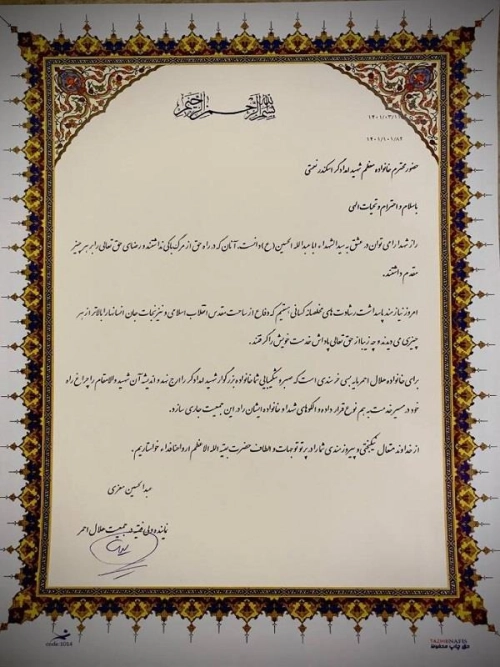 بسم الله الرحمن الرحیم
۱۴۰۱/۱۰۱/۸۲
حضور محترم خانواده معظم شهید امدادگر اسکندر نعمتی
با سلام و احترام و تحیات الهی
راز شهدا را می توان در عشق به سیدالشهداء ابا عبدالله الحسین (ع) دانست. آنان که در راه حق از مرگ باکی نداشتند و رضای حق تعالی را بر هر چیز
مقدم داشتند.
امروز نیازمند پاسداشت رشادت های مخلصانه کسانی هستیم که دفاع از ساحت مقدس انقلاب اسلامی و نیز نجات جان انسانها را بالاتر از هر
چیزی می دیدند و چه زیبا از حق تعالی پاداش خدمت خویش را گرفتند.
برای خانواده هلال احمر مایه بسی خرسندی است که صبر و شکیبایی شما خانواده بزرگوار شهید امدادگر را ارج نهد و اندیشه آن شهید والامقام را چراغ راه
خود در مسیر خدمت به هم نوع قرار داده و الگوهای شهدا و خانواده ایشان را در این جمعیت جاری سازد.
از خداوند متعال نیکبختی و پیروزمندی شما را در پرتو توجهات و الطاف حضرت بقیه الله الاعظم ارواحنا فداه خواستاریم.
عبدالحسین معزی
نماینده ولی فقیه در جمعیت هلال احمر
code:1014
YADMENAFIS
حق چاپ محفوظ